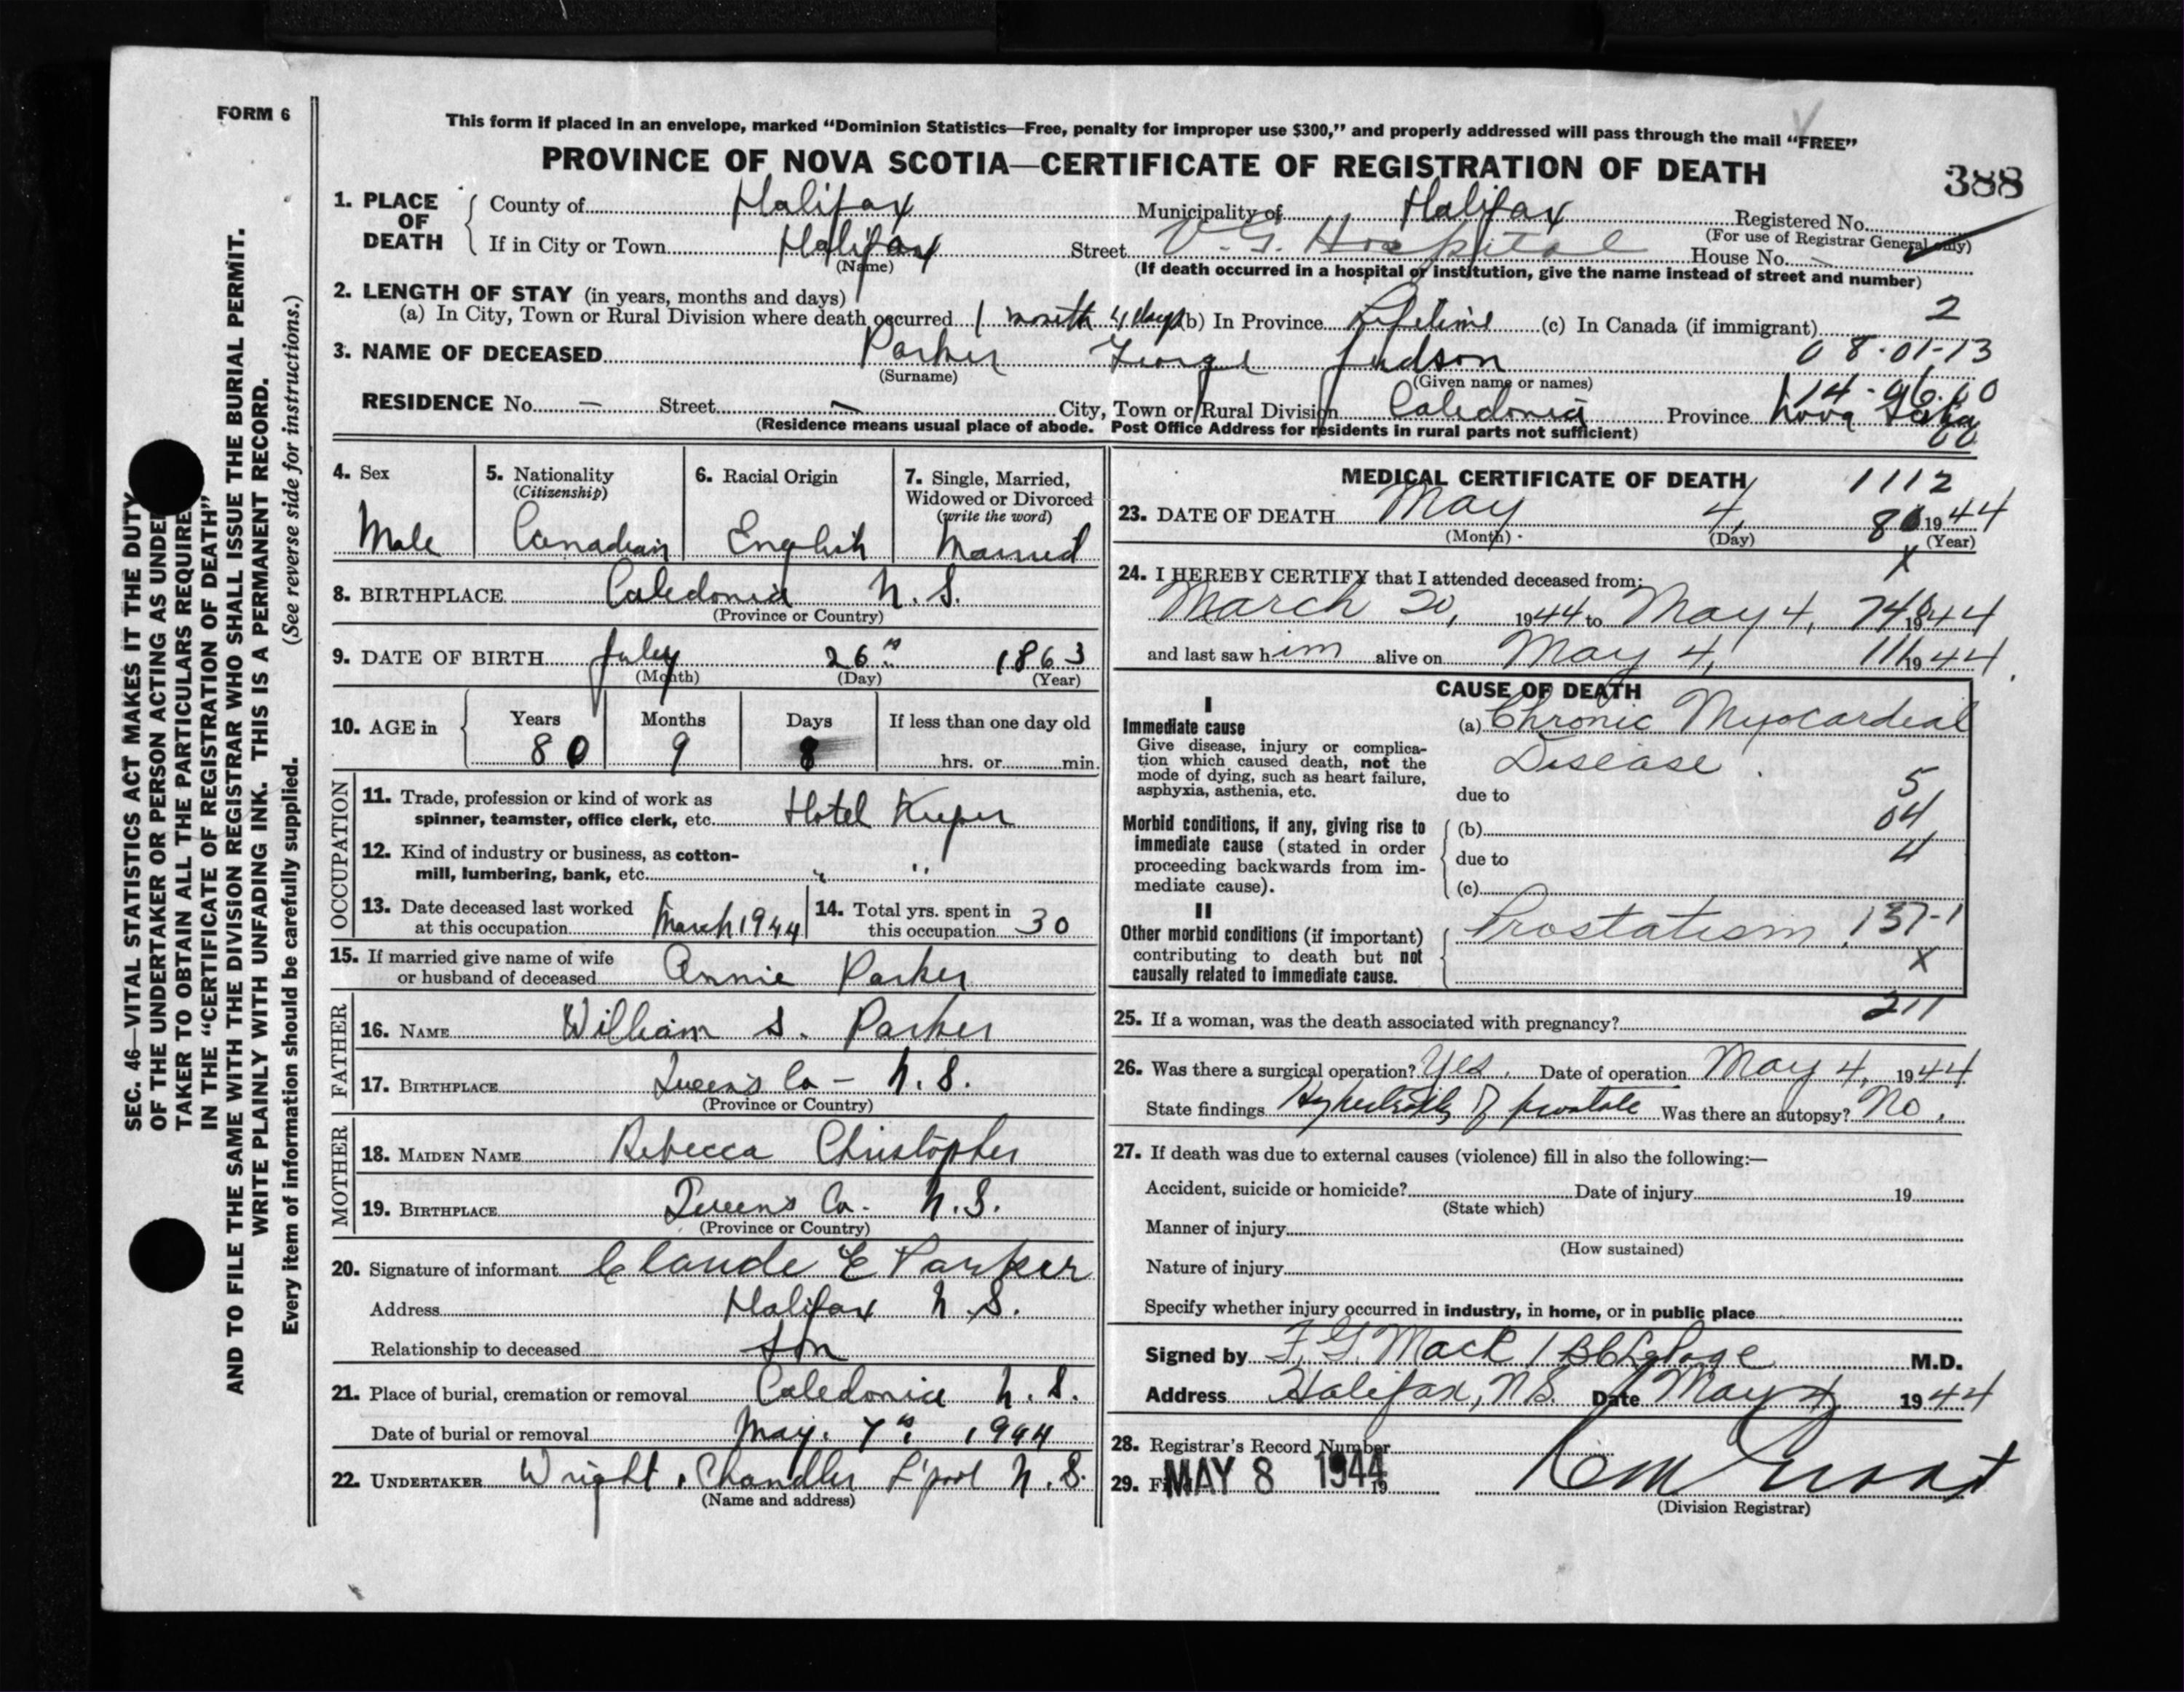 FORM 6
This form if placed in an envelope, marked "Dominion Statistics—Free, penalty for improper use $300," and properly addressed will pass through the mail "FREE"
PROVINCE OF NOVA SCOTIA—CERTIFICATE OF REGISTRATION OF DEATH
388
1. PLACE OF DEATH County of Halifax Municipality of Halifax Registered No.
(For use of Registrar General only)
If in City or Town Halifax Street V. G. Hospital House No. -
(Name) (If death occurred in a hospital or institution, give the name instead of street and number)
2. LENGTH OF STAY (in years, months and days)
(a) In City, Town or Rural Division where death occurred 1 month 4 days (b) In Province Lifetime (c) In Canada (if immigrant) 2
3. NAME OF DECEASED Parker George Judson 08-01-13
(Surname) (Given name or names)
14-96.60
RESIDENCE No. — Street — City, Town or Rural Division Caledonia Province Nova Scotia
(Residence means usual place of abode. Post Office Address for residents in rural parts not sufficient)
4. Sex Male
5. Nationality (Citizenship) Canadian
6. Racial Origin English
7. Single, Married, Widowed or Divorced (write the word) Married
8. BIRTHPLACE Caledonia N. S.
(Province or Country)
9. DATE OF BIRTH July 26th 1863
(Month) (Day) (Year)
10. AGE in Years 80 Months 9 Days 8 If less than one day old hrs. or min.
OCCUPATION
11. Trade, profession or kind of work as
spinner, teamster, office clerk, etc. Hotel Keeper
12. Kind of industry or business, as cotton-
mill, lumbering, bank, etc. " "
13. Date deceased last worked
at this occupation March 1944
14. Total yrs. spent in
this occupation 30
15. If married give name of wife
or husband of deceased Annie Parker
FATHER
16. NAME William S. Parker
17. BIRTHPLACE Queen's Co - N. S.
(Province or Country)
MOTHER
18. MAIDEN NAME Rebecca Christopher
19. BIRTHPLACE Queens Co. N. S.
(Province or Country)
20. Signature of informant Claude E Parker
Address Halifax N. S.
Relationship to deceased Son
21. Place of burial, cremation or removal Caledonia N. S.
Date of burial or removal May. 7th 1944
22. UNDERTAKER Wright, Chandler L'pool N. S.
(Name and address)
MEDICAL CERTIFICATE OF DEATH 1112
23. DATE OF DEATH May 4, 80 1944
(Month) (Day) (Year)
X
24. I HEREBY CERTIFY that I attended deceased from:
March 20, 1944 to May 4, 1944
and last saw him alive on May 4, 1944
CAUSE OF DEATH
I
Immediate cause
Give disease, injury or complica-
tion which caused death, not the
mode of dying, such as heart failure,
asphyxia, asthenia, etc.
(a) Chronic Myocardeal
Disease.
due to 5
Morbid conditions, if any, giving rise to
immediate cause (stated in order
proceeding backwards from im-
mediate cause).
(b) 04
due to 4
(c)
II
Other morbid conditions (if important)
contributing to death but not
causally related to immediate cause.
Prostatism. 137-1
X
211
25. If a woman, was the death associated with pregnancy?
26. Was there a surgical operation? Yes. Date of operation May 4, 1944
State findings Hypertrophy of prostate Was there an autopsy? No.
27. If death was due to external causes (violence) fill in also the following:—
Accident, suicide or homicide? Date of injury 19
(State which)
Manner of injury
(How sustained)
Nature of injury
Specify whether injury occurred in industry, in home, or in public place
Signed by F. G. Mack / M.D.
Address Halifax, N.S. Date May 4 1944
28. Registrar's Record Number
29. MAY 8 1944 19
(Division Registrar)
SEC. 46—VITAL STATISTICS ACT MAKES IT THE DUTY
OF THE UNDERTAKER OR PERSON ACTING AS UNDER
TAKER TO OBTAIN ALL THE PARTICULARS REQUIRE
IN THE "CERTIFICATE OF REGISTRATION OF DEATH"
AND TO FILE THE SAME WITH THE DIVISION REGISTRAR WHO SHALL ISSUE THE BURIAL PERMIT.
WRITE PLAINLY WITH UNFADING INK. THIS IS A PERMANENT RECORD.
Every item of information should be carefully supplied. (See reverse side for instructions.)